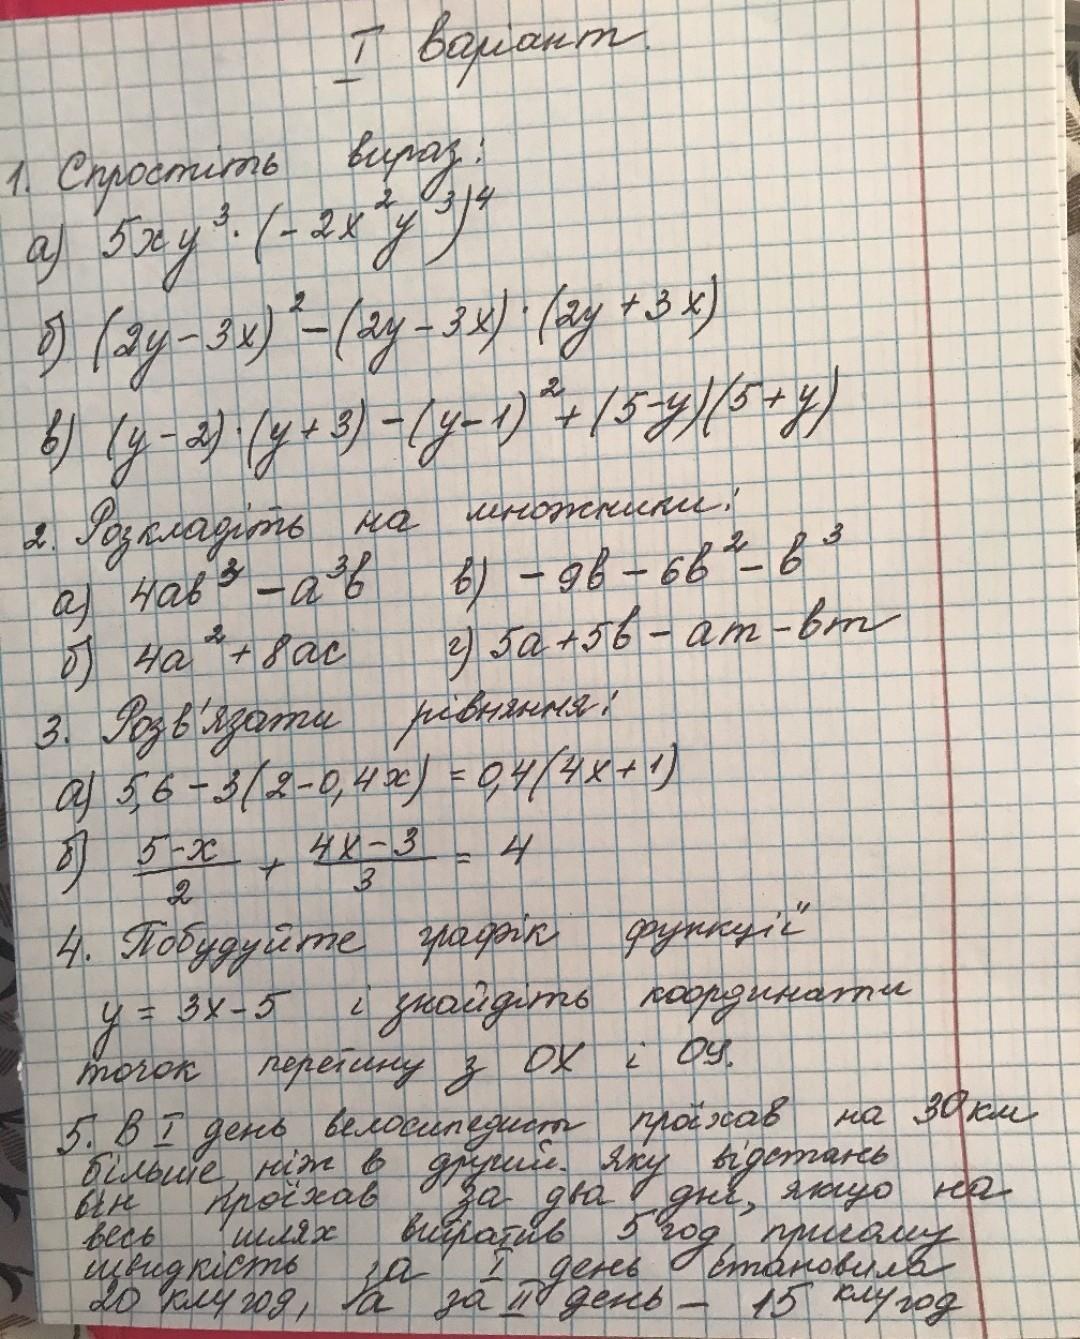 I варіант.
1. Спростіть вираз:
а) 5xy³·(-2x²y³)⁴
б) (2y-3x)²-(2y-3x)·(2y+3x)
в) (y-2)·(y+3)-(y-1)²+(5-y)(5+y)
2. Розкладіть на множники:
а) 4ab³-a³b в) -9b-6b²-b³
б) 4a²+8ac г) 5a+5b-am-bm
3. Розв'язати рівняння:
а) 5,6-3(2-0,4x)=0,4(4x+1)
б) (5-x)/2 + (4x-3)/3 = 4
4. Побудуйте графік функції
y=3x-5 і знайдіть координати
точок перетину з OX і OY.
5. В I день велосипедист проїхав на 30 км
більше, ніж в другий. Яку відстань
він проїхав за два дні, якщо на
весь шлях витратив 5 год, причому
швидкість за I день становила
20 км/год, а за II день - 15 км/год